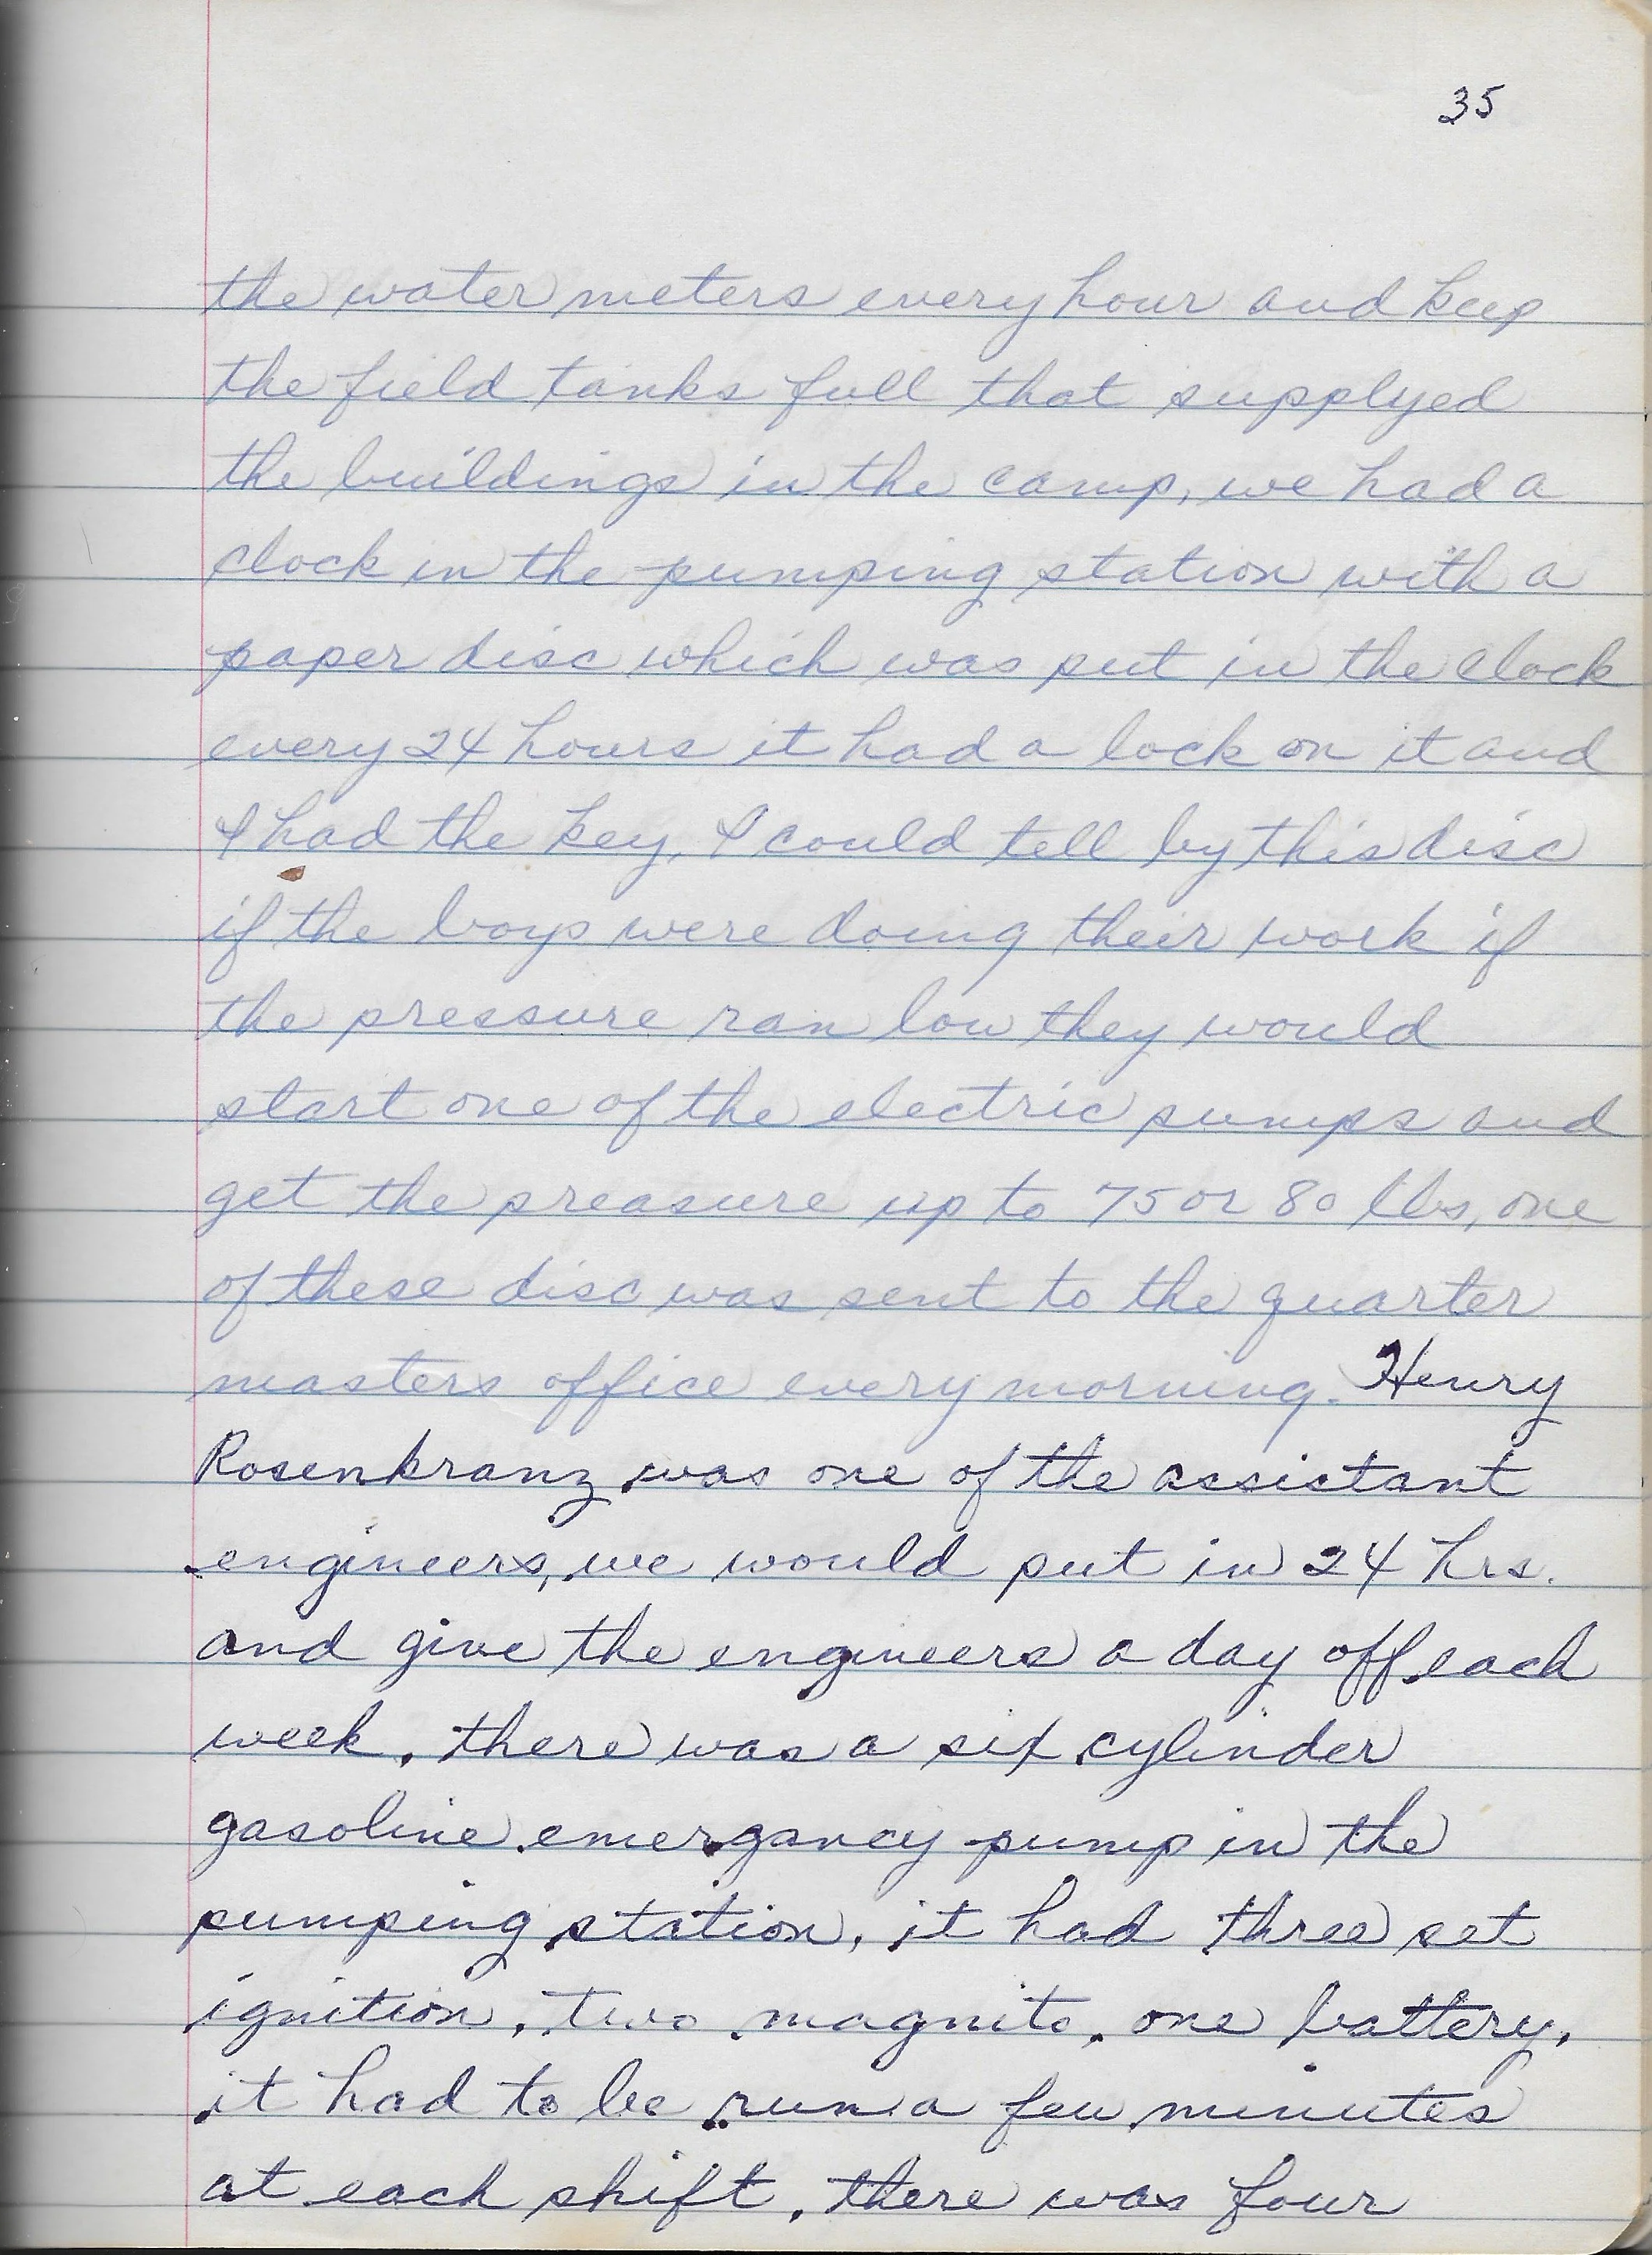 35
the water meters every hour and keep
the field tanks full that supplyed
the buildings in the camp, we had a
clock in the pumping station with a
paper disc which was put in the clock
every 24 hours it had a lock on it and
I had the key, I could tell by this disc
if the boys were doing their work if
the pressure ran low they would
start one of the electric pumps and
get the preasure up to 75 or 80 lbs, one
of these disc was sent to the quarter
masters office every morning. Henry
Rosenkranz was one of the assistant
engineers, we would put in 24 hrs.
and give the engineers a day off each
week. there was a six cylinder
gasoline emergancy pump in the
pumping station, it had three set
ignition, two magnito, one battery,
it had to be run a few minutes
at each shift, there was four